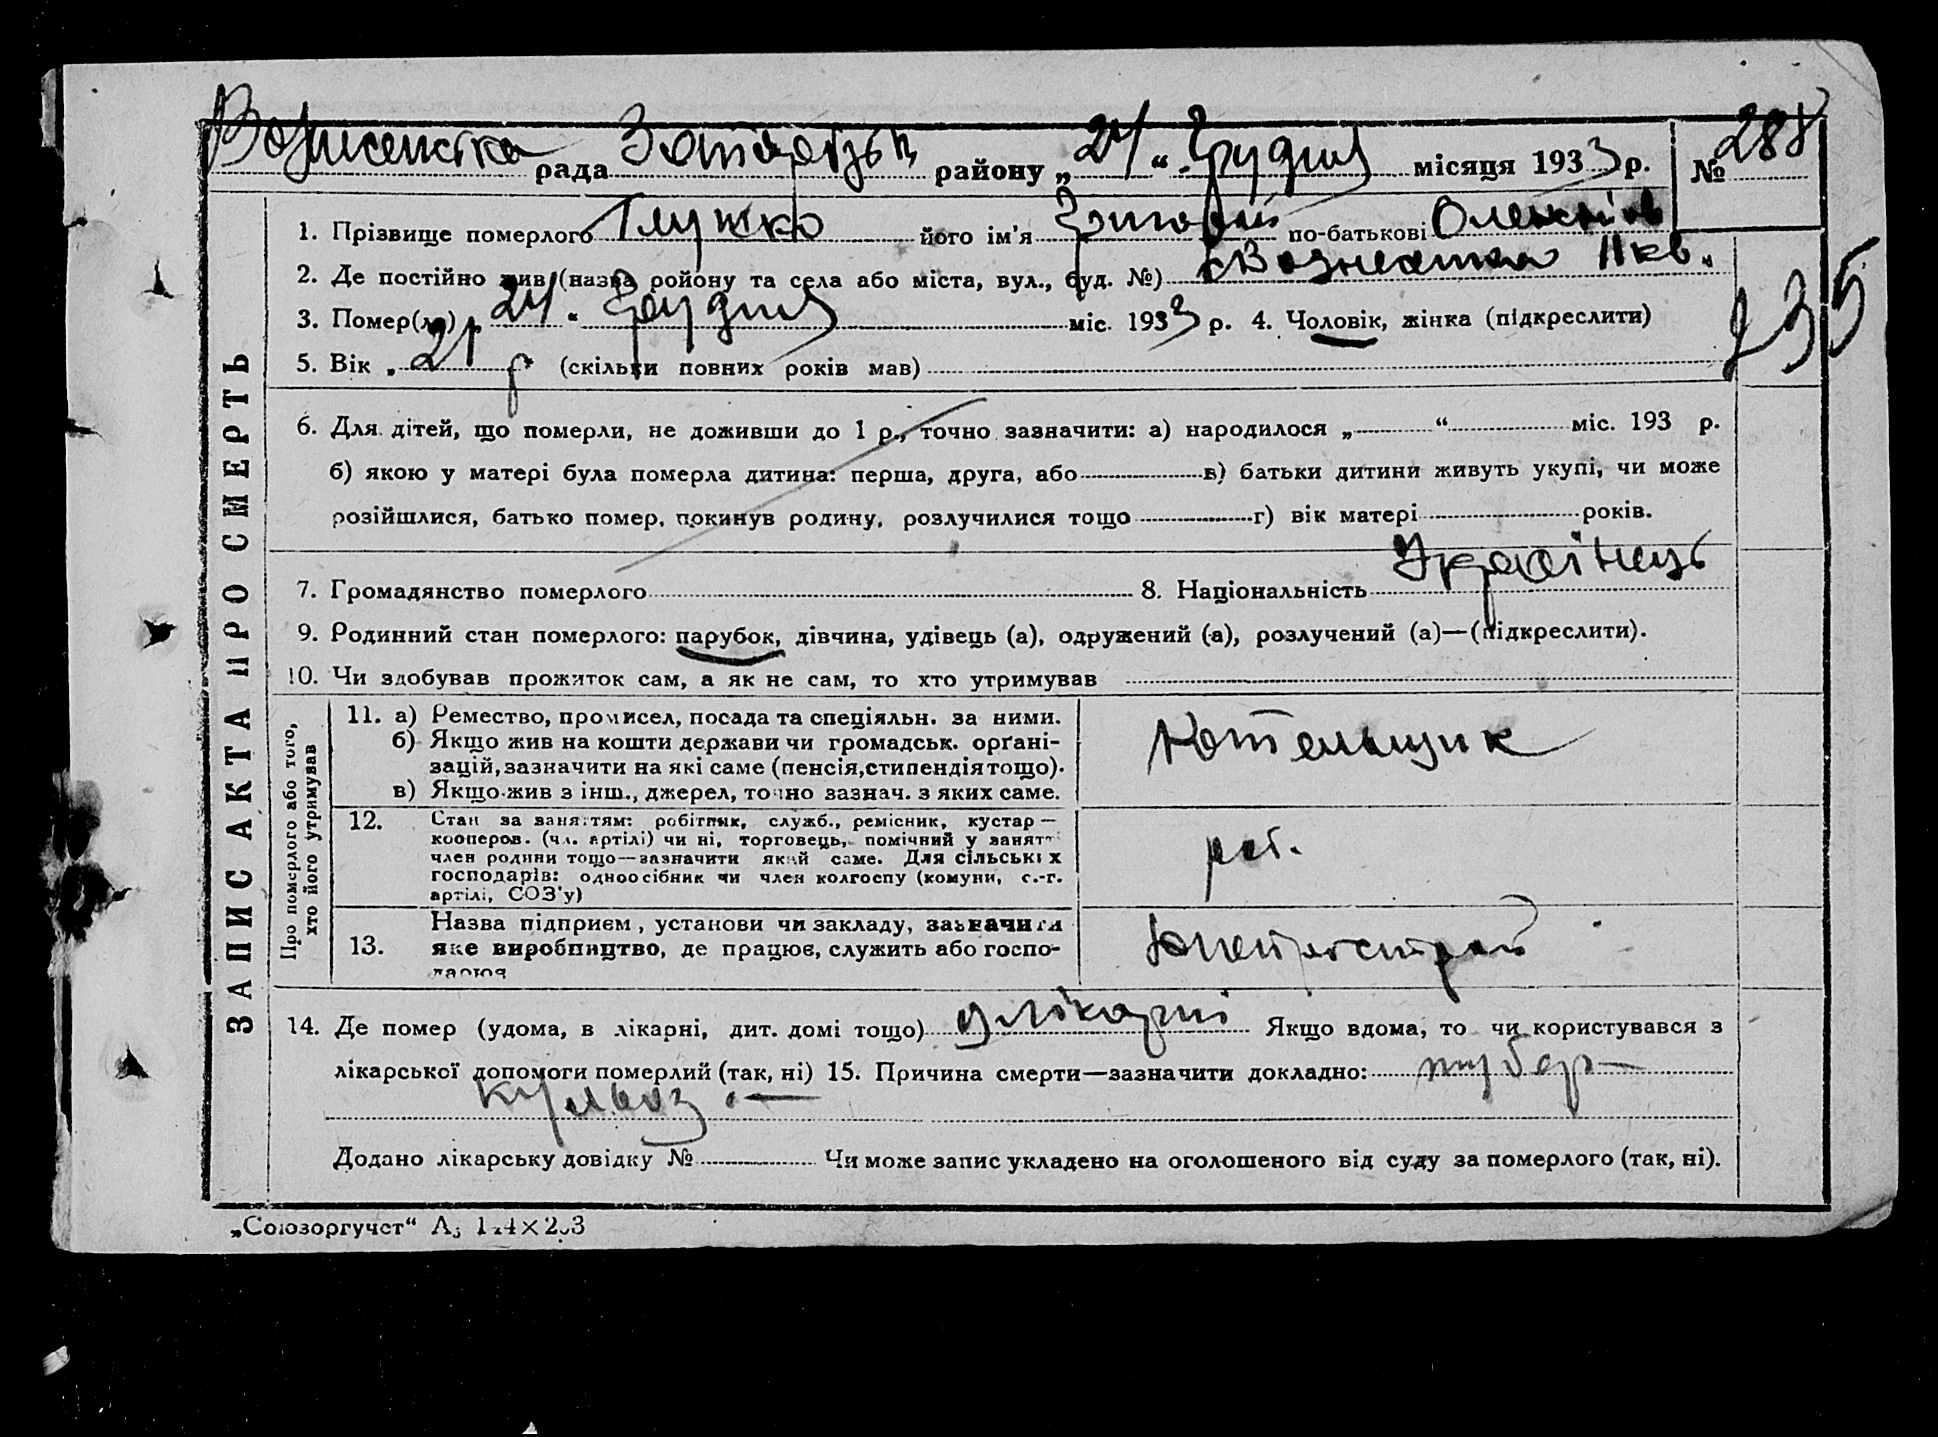 Вознесенська рада Запорізьк району „24“ Грудня місяця 1933 р. № 288
1. Прізвище померлого Глушко його ім'я Григорій по-батькові Олексійов
2. Де постійно жив (назва ройону та села або міста, вул., буд. №) Вознесенка 11 кв.
3. Помер(ла) „24“ Грудня міс. 1933 р. 4. Чоловік, жінка (підкреслити)
235
5. Вік „21 р. (скільки повних років мав)
6. Для дітей, що померли, не доживши до 1 р., точно зазначити: а) народилося „ “ міс. 193 р.
б) якою у матері була померла дитина: перша, друга, або в) батьки дитини живуть укупі, чи може
розійшлися, батько помер, покинув родину, розлучилися тощо г) вік матері років.
7. Громадянство померлого 8. Національність Українець
9. Родинний стан померлого: парубок, дівчина, удівець (а), одружений (а), розлучений (а)—(підкреслити).
10. Чи здобував прожиток сам, а як не сам, то хто утримував
ЗАПИС АКТА ПРО СМЕРТЬ
Про померлого або того,
хто його утримував
11. а) Ремество, промисел, посада та спеціяльн. за ними.
б) Якщо жив на кошти держави чи громадськ. орґані-
зацій, зазначити на які саме (пенсія, стипендія тощо).
в) Якщо жив з інш., джерел, точно зазнач. з яких саме.
Котельщик
12. Стан за заняттям: робітник, служб., ремісник, кустар—
кооперов. (чл. артілі) чи ні, торговець, помічний у занятт
член родини тощо—зазначити який саме. Для сільських
господарів: одноосібник чи член колгоспу (комуни, с.-г.
артілі, СОЗ'у)
роб.
13. Назва підприєм, установи чи закладу, зазначити
яке виробництво, де працює, служить або госпо-
дарює
Дніпрострой
14. Де помер (удома, в лікарні, дит. домі тощо) у лікарні Якщо вдома, то чи користувався з
лікарської допомоги померлий (так, ні) 15. Причина смерти—зазначити докладно: тубер-
кульоз.—
Додано лікарську довідку № Чи може запис укладено на оголошеного від суду за померлого (так, ні).
„Союзоргучет“